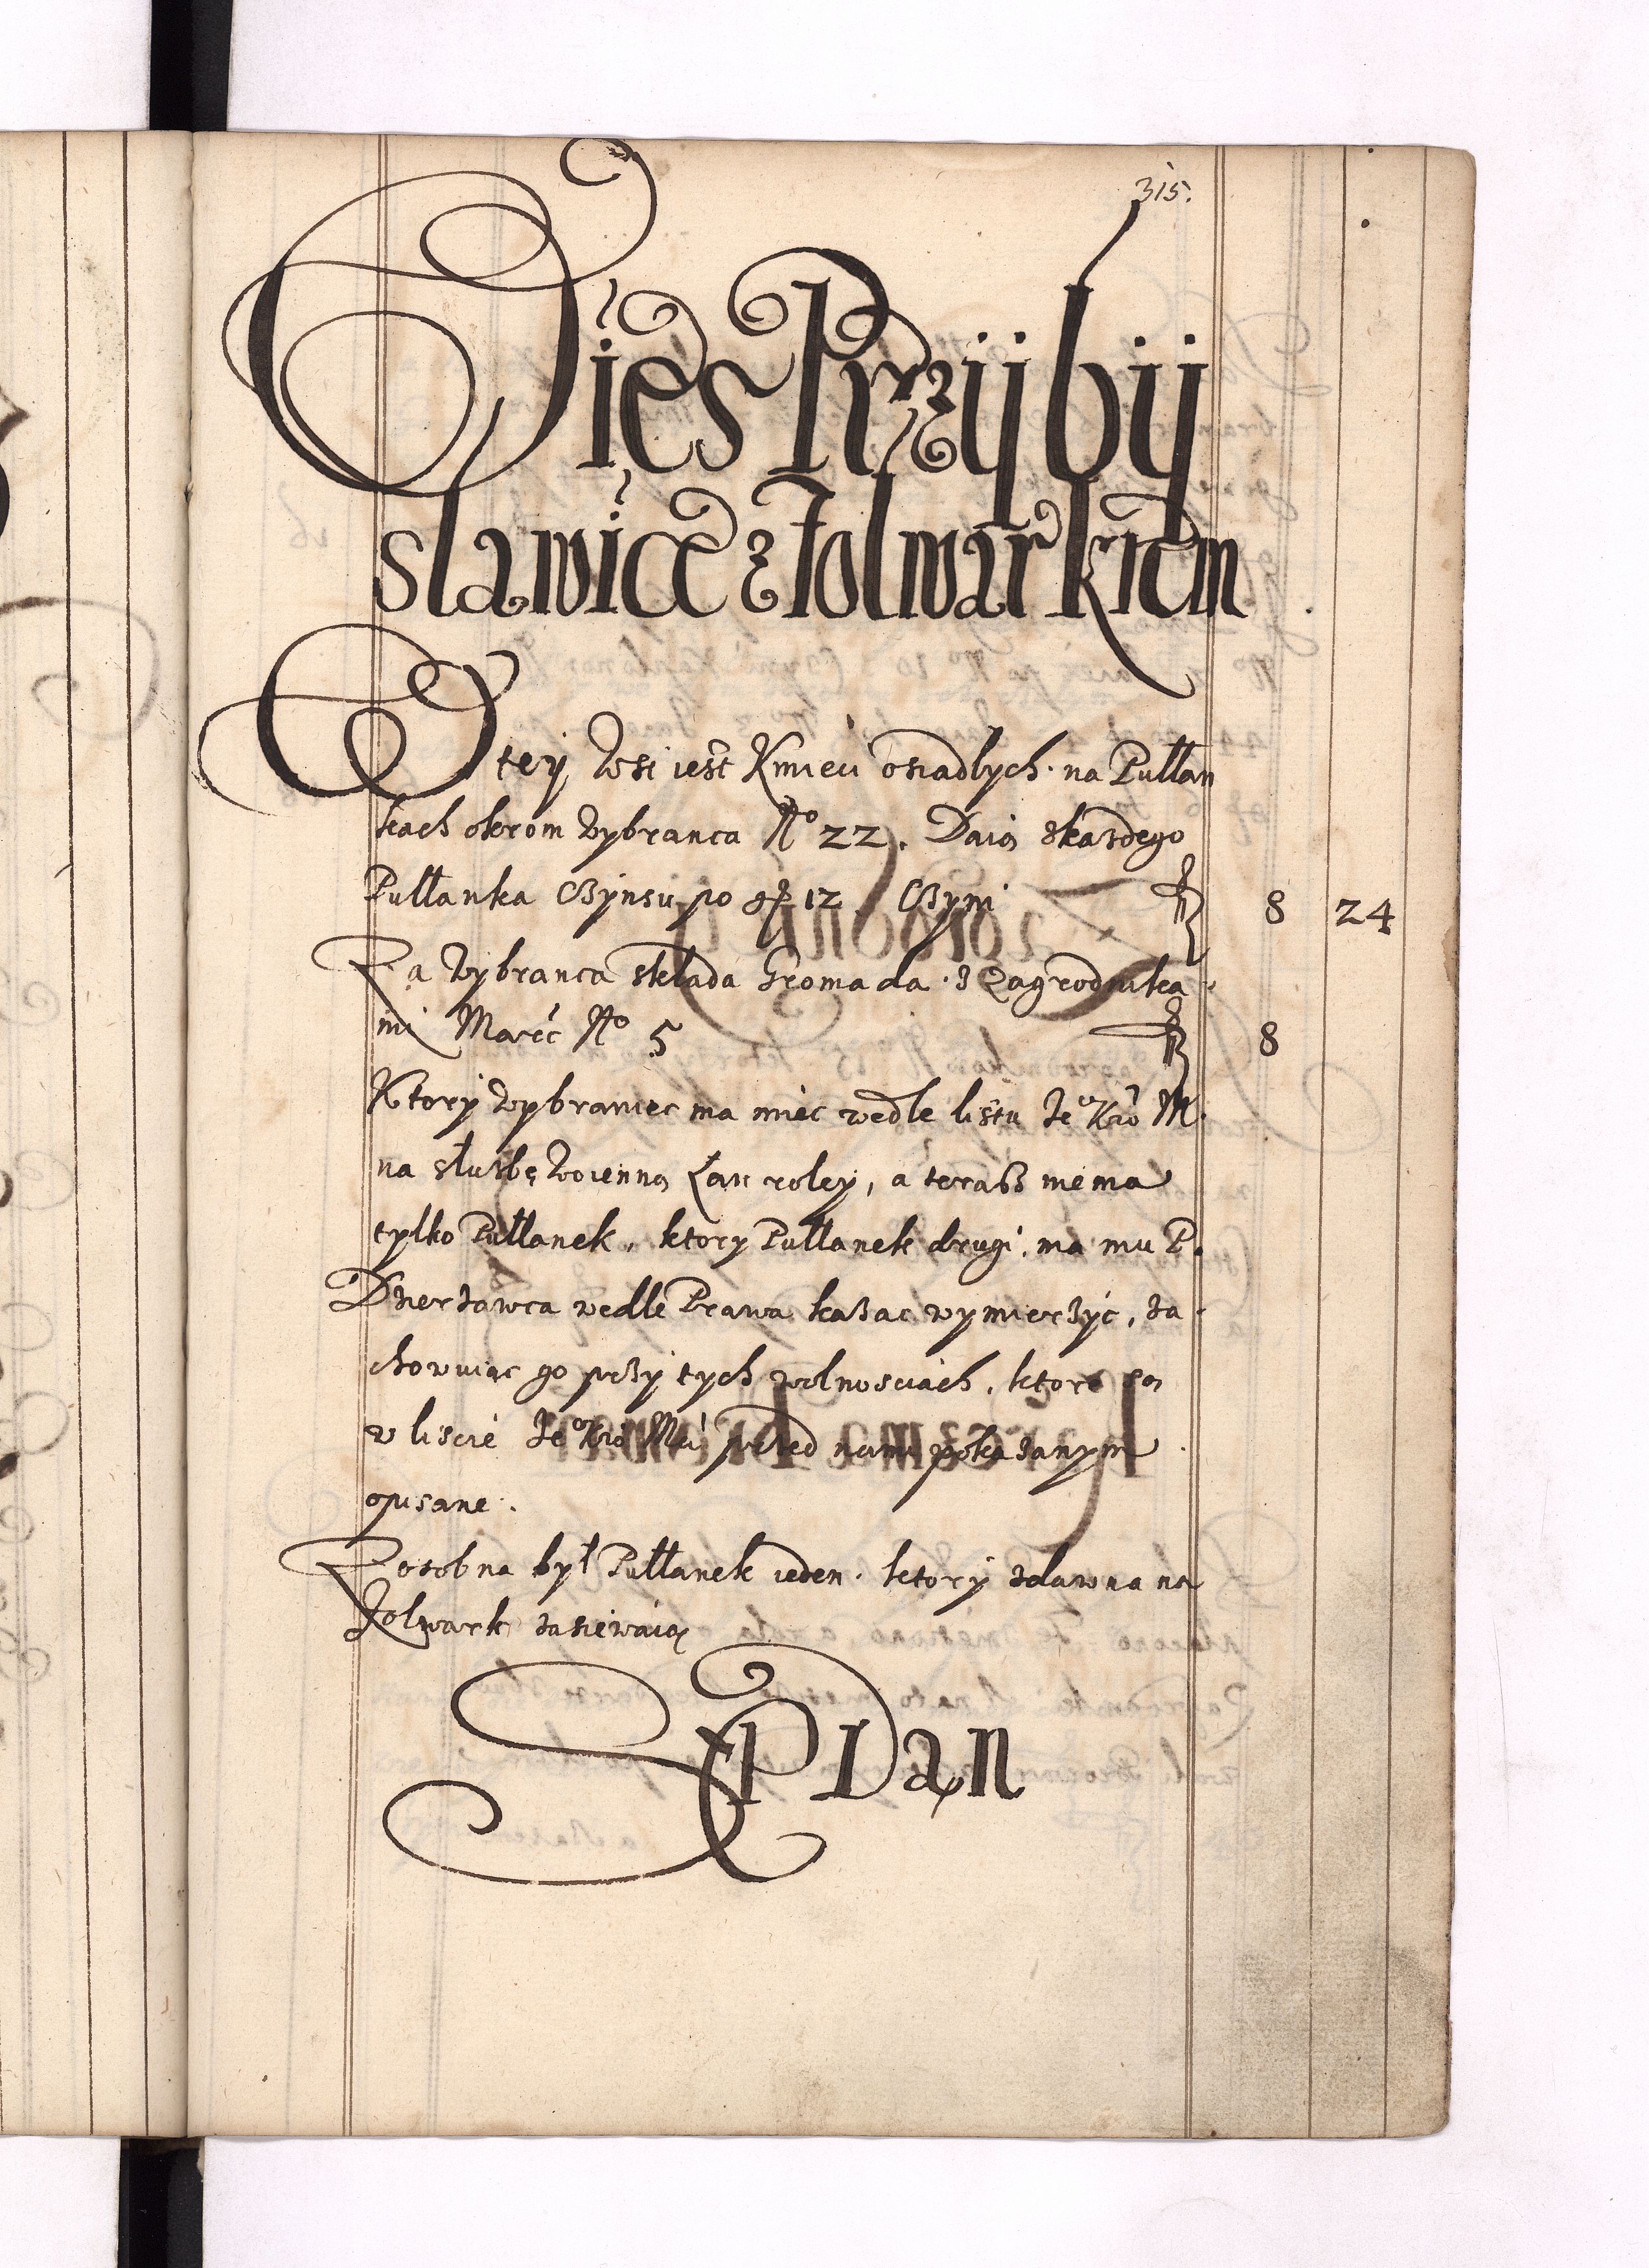 315.
Wies Przÿbÿ
slawice z folwarkiem
W teÿ Wsi iest Kmieci osiadłych na Pułłan
kach okrom Wybranca No 22. Daią zkazdego
Pułłanka Czÿnsu po gr 12 Czyni 8 24
Za Wybranca składa Gromada z Zagrodnika
mi Marc No 5 8
Ktorÿ Wybraniec ma miec wedle listu Je° Kro M.
na słuzbę Woienną Łan roley, a terasz nie ma
tylko Pułłanek, ktory Pułłanek drugi, ma mu P.
Dzierzawca wedle Prawa kazac wymierzyc, za
chowuiąc go przÿ tych wolnosciach, ktore są
w liscie Je° Kro Mci przed nami pokazanym
opisane.
Zosobna był Pułłanek ieden ktorÿ zdawna na
Folwark zasiewaią
Sepidan